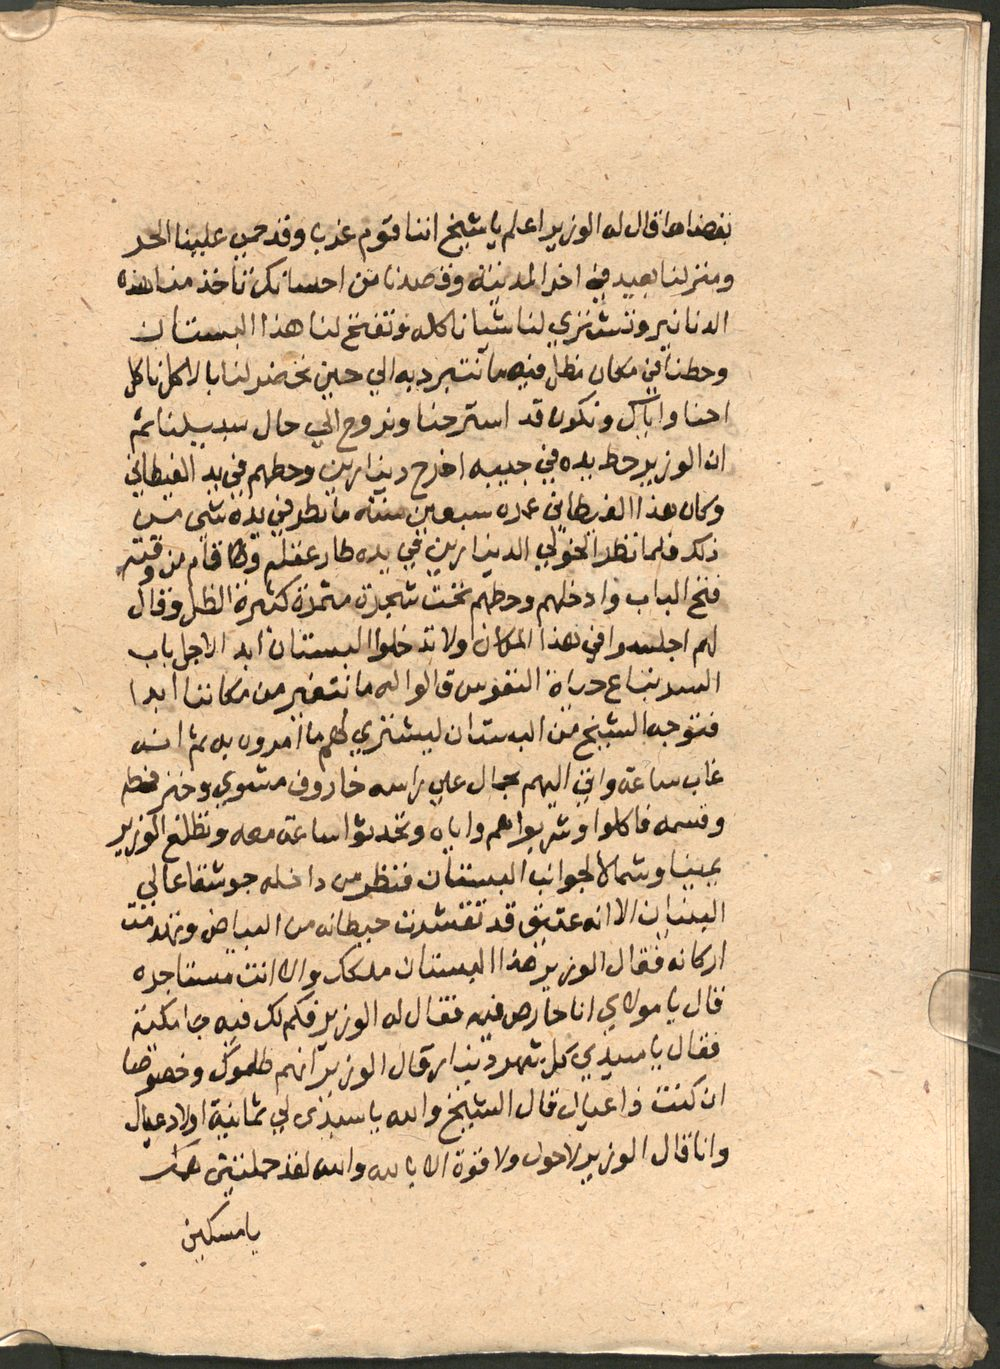 نقضناها قال له الوزير اعلم يا شيخ اننا قوم غربا وقد حمي علينا الحر
ومنزلنا بعيد في اخر المدينة وقصدنا من احسانك تاخذ منا هذه
الدنانير وتشتري لنا شيا ناكله وتفتح لنا هذا البستان
وحطنا في مكان مظل فيه ما نتبرد به الي حين تحضر لنا بالاكل ناكل
احنا واياك ونكون قد استرحنا ونروح الي حال سبيلنا ثم
ان الوزير حط يده في جيبه اخرج دينارين وحطهم في يد الغيطاني
وكان هذا الغيطاني عمره سبعين سنته ما نطر في يده شي من
ذلك فلما نظر الخولي الدينارين في يده طار عقله وقام من وقته
فتح الباب وادخلهم وحطهم تحت شجرة مثمرة كثيرة الظل وقال
لهم اجلسوا في هذا المكان ولا تدخلوا البستان ابدا لاجل باب
السر بتاع حياة النفوس قالوا له ما نتغير من مكاننا ابدا
فتوجه الشيخ من البستان ليشتري لهم ما امروه به ثم انه
غاب ساعة واتي اليهم بحمال علي راسه خاروف مشوي وخبز فحطه
وقسمه فاكلوا وشربوا هم واياه وتحدثوا ساعة معه وتطلع الوزير
يمينا وشمالا لجوانب البستان فنظر من داخله جوشقا عالي
البنيان الا انه عتيق قد تقشرت حيطانه من البياض وتهدمت
اركانه فقال الوزير هذا البستان ملكك والا انت مستاجره
قال يا مولاي انا حارص فيه فقال له الوزير فكم لك فيه جامكية
فقال يا سيدي كل شهر دينار قال الوزير انهم ظلموك وخصوصا
ان كنت ذا عيال قال الشيخ والله يا سيدي لي ثمانية اولاد عيال
وانا قال الوزير لا حول ولا قوة الا بالله والله لقد حملتني همك
يا مسكين